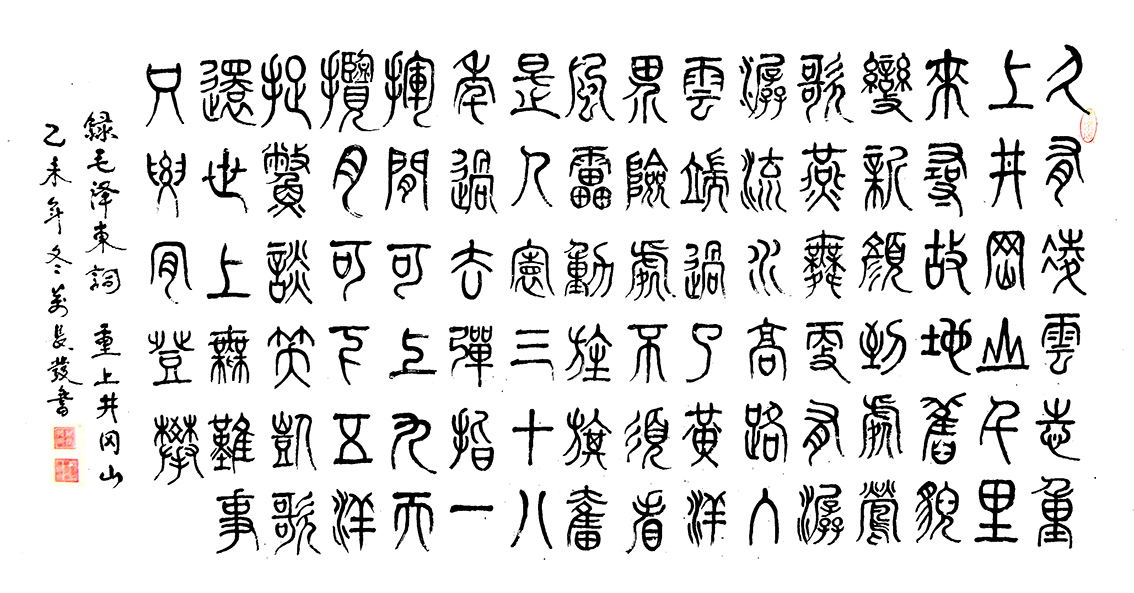 久有凌雲志重
上井岡山千里
來尋故地舊貌
變新顏到處鶯
歌燕舞更有潺
潺流水高路入
雲端過了黃洋
界險處不須看
風雷動旌旗奮
是人寰三十八
年過去彈指一
揮間可上九天
攬月可下五洋
捉鱉談笑凱歌
還世上無難事
只要肯登攀
録毛泽東詞 重上井冈山
乙未年冬萬長發書